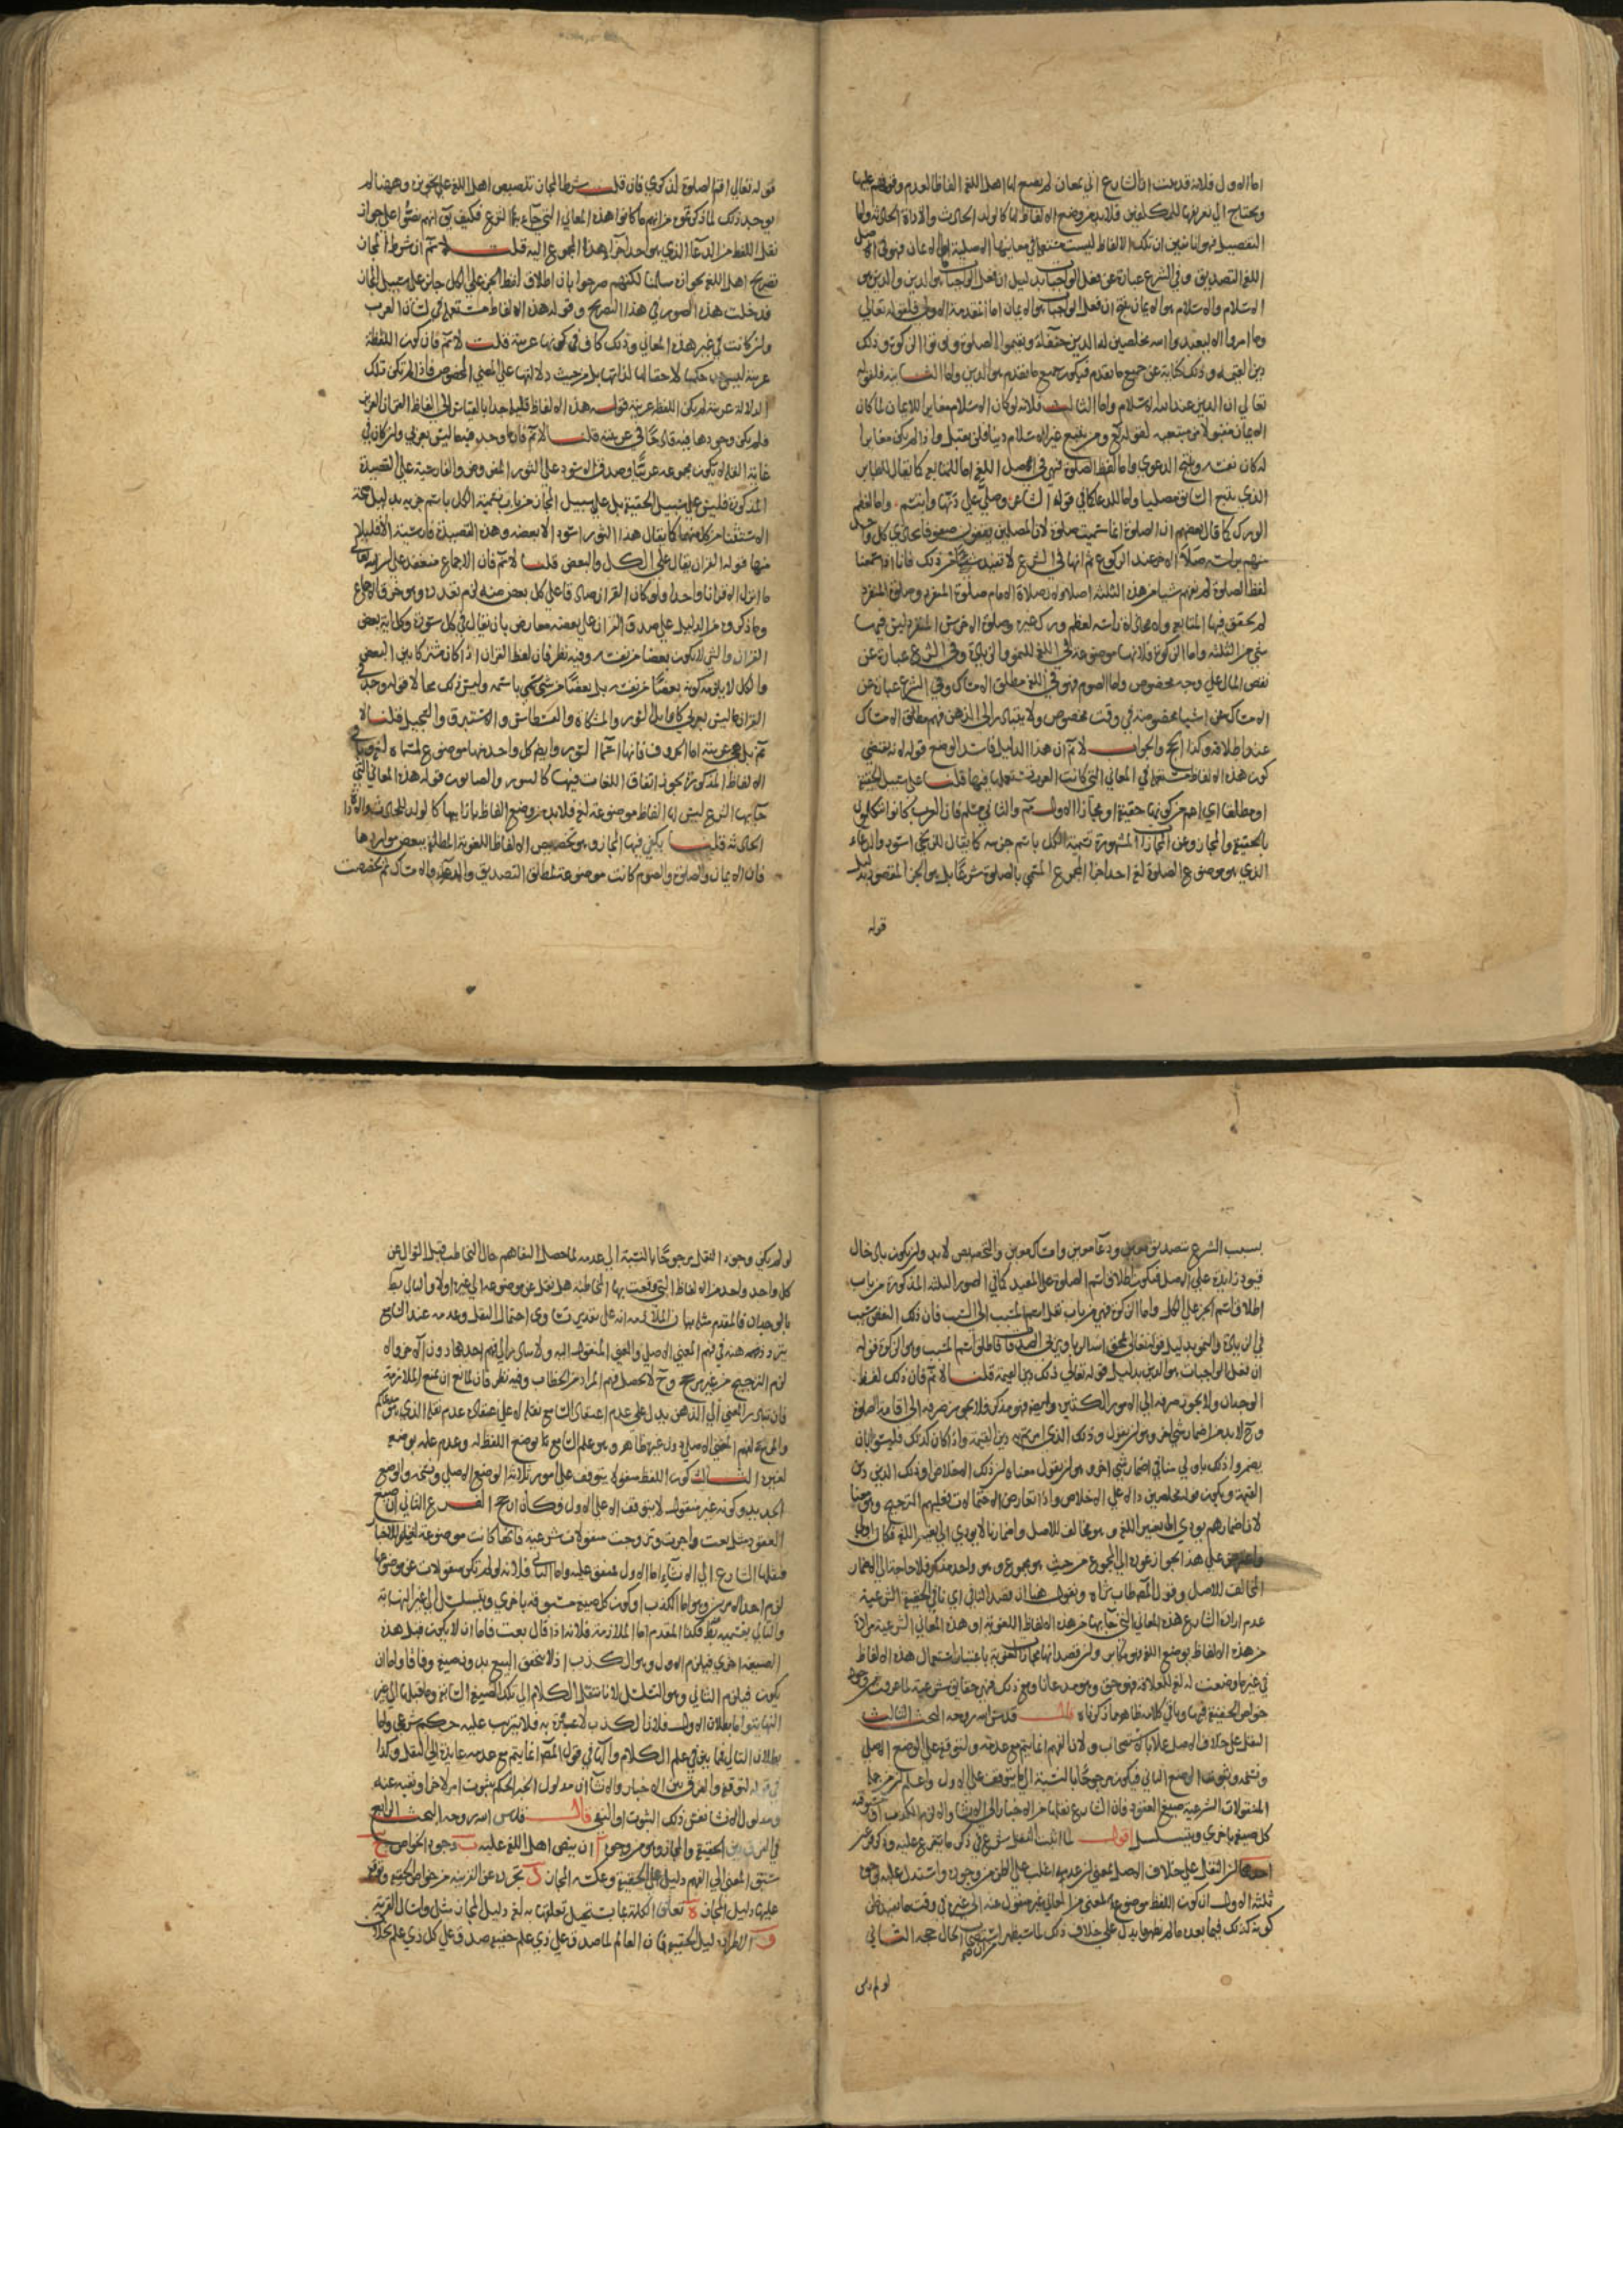 اما الاول فلانه قد ثبت ان الشارع اتي بمعان لم يضع لها اهل اللغة الفاظا لعدم وقوفهم عليها
ويحتاج الي تعريفها للمكلفين فلابد من وضع الالفاظ لها كالولد الحادث والاداة الحادثة واما
التفصيل فهو انا نبين ان تلك الالفاظ ليست مستعملة في معانيها الاصلية اما الايمان فهو في اصل
اللغة التصديق وفي الشرع عبارة عن فعل الواجبات بدليل ان فعل الواجبات هو الدين والدين هو
الاسلام والاسلام هو الايمان ينتج ان فعل الواجبات هو الايمان اما المقدمة الاولي فلقوله تعالي
وما امروا الا ليعبدوا الله مخلصين له الدين حنفاء ويقيموا الصلوة ويوتوا الزكوة وذلك
دين القيمة وذلك كناية عن جميع ما تقدم فيكون جميع ما تقدم هو الدين واما الثانية فلقوله
تعالي ان الدين عند الله الاسلام واما الثالثة فلانه لو كان الاسلام مغايرا للايمان لما كان
الايمان مقبولا من مبتغيه لقوله تع ومن يبتغ غير الاسلام دينا فلن يقبل منه واذا لم يكن مغايرا
له كان نفسه وينتج الدعوي واما لفظ الصلوة فهي في اصل اللغة اما للمتابع كما يقال للطاير
الذي يتبع السابق مصليا واما للدعا كما في قوله الشاعر وصلي علي دنها وارتسم واما لعظم
الورك كما قال بعضهم ان الصلوة انما سميت صلوة لان المصلين يقفون صفوفا يحاذي كل واحد
منهم براسه صلا الاخر عند الركوع ثم انها في الشرع لا تفيد شيئا من ذلك فانا اذا سمعنا
لفظ الصلوة لم نفهم شيا من هذه الثلثة اصلا ولان صلاة الامام صلوة المنفرد وصلوة المنفرد
لم يتحقق فيها المتابع ولا محاذاة راسه لعظم ورك غيره وصلوة الاخرس المنفرد ليس فيها
شي من الثلثة واما الزكوة فلانها موضوعة في اللغة للنمو والزيادة وفي الشرع عبارة عن
نقص المال علي وجه مخصوص واما الصوم فهو في اللغة مطلق الامساك وفي الشرع عبارة عن
الامساك عن اشيا مخصوصة في وقت مخصوص ولا يتبادر الي الذهن فهم مطلق الامساك
عند اطلاقه وكذا الحج والجواب لا نم ان هذا الدليل فاسد الوضع قوله لانه يقتضي
كون هذه الالفاظ مستعملة في المعاني التي كانت العرب تستعملها فيها قلنا علي سبيل الحقيقة
او مطلقا اي اعم من كونها حقيقة او مجازا الاول نم والثاني مسلم فان العرب كانوا يتكلمون
بالحقيقة والمجاز ومن المجازات المشهورة تسمية الكل باسم جزءه كما يقال للزنجي اسود والدعاء
الذي هو موضوع الصلوة لغة احد اجزا المجموع المسمي بالصلوة شرعا بل هو الجزا المقصود بدليل
قوله
قوله تعالي اقم الصلوة لذكري فان قلت شرط المجاز تنصيص اهل اللغة علي تجويزه وههنا لم
يوجد ذلك لما ذكرتموه من انهم ما كانوا هذه المعاني التي جاء بها الشرع فكيف يق انهم نصوا علي جواز
نقل اللفظ من الدعا الذي هو احد اجزا هذا المجموع اليه قلت لا نم ان شرط المجاز
تصريح اهل اللغة بجوازه سلمنا لكنهم صرحوا بان اطلاق لفظ الجز علي الكل جايز علي سبيل المجاز
فدخلت هذه الصور في هذا التصريح وقوله هذه الالفاظ مستعملة في لسان العرب
وان كانت في غير هذه المعاني وذلك كاف في كونها عربية قلت لا نم فان كون اللفظة
عربية ليس حكما لاحقا لها لذاتها بل من حيث دلالتها علي المعني المخصوص فاذا لم تكن تلك
الدلالة عربية لم يكن اللفظ عربية قوله هذه الالفاظ قليلة جدا بالقياس الي الفاظ القران العزيز
فلم يكن وجودها فيه قادحا في عربيته قلنا لا نم فان ما وجد فيه ما ليس بعربي وان كان في
غاية القلة لا يكون مجموعه عربيا وصدق الاسود علي الثور المفروض والفارسية علي القصيدة
المذكورة فليس علي سبيل الحقيقة بل علي سبيل المجاز من باب تسمية الكل باسم جزءه بدليل صحة
الاستثنا من كل منهما كما يقال هذا الثور اسود الا بعضه وهذه القصيدة فارسية الا قليلا
منها قوله القران يقال علي الكل والبعض قلنا لا نم فان الاجماع منعقد علي ان الله تعالي
ما انزل الا قرانا واحدا ولو كان القران صادقا علي كل بعض منه لزم تعدده وهو خرق الاجماع
وما ذكروه من الدليل علي صدق القران علي بعضه معارض بان يقال في كل سورة وكل اية بعض
القران والشي لا يكون بعضا من نفسه وفيه نظر فان لفظ القران اذا كان مشتركا بين البعض
والكل لا يلزم كونه بعضا من نفسه بل بعضا من شي سمي باسمه وليس ذلك محالا قوله وجد في
القران ما ليس بعربي كاوايل السور والمشكاة والقسطاس والاستبرق والسجيل قلنا لا
نم بل هي عربية اما الحروف فانها اسما السور وايضا كل واحد منها موضوع لمسماه لغة وباقي
الالفاظ المذكورة يجوز اتفاق اللغات فيها كالتنور والصابون قوله هذه المعاني التي
جا بها الشرع ليس لها الفاظ موضوعة لغة فلابد من وضع الفاظ بازايها كالولد الحادث والاداة
الحادثة قلنا يكفي فيها المجاز وهو تخصيص الالفاظ اللغوية المطلقة ببعض مواردها
فان الايمان والصلوة والصوم كانت موضوعة لمطلق التصديق والدعاء والامساك ثم تخصصت
بسبب الشرع بتصديق معين ودعا معين وامساك معين والتخصيص لابد وان يكون بادخال
قيود زايدة علي الاصل فيكون اطلاق اسم الصلوة علي المقيد كما في الصور الثلثة المذكورة من باب
اطلاق اسم الجز علي الكل واما الزكوة فهي من باب نقل اسم المسبب الي السبب فان ذلك النقص سبب
في الزيادة والنمو بدليل قوله تعالي يمحق الله الربا ويربي الصدقات فاطلق اسم المسبب وهو الزكوة قوله
ان فعل الواجبات هو الدين بدليل قوله تعالي ذلك دين القيمة قلنا لا نم فان ذلك لفظ
الوحدان ولا يجوز صرفه الي الامور الكثيرة وايضا فهو مذكر فلا يجوز صرفه الي اقامة الصلوة
وح لابد من اضمار شي اخر وهو ان يقول وذلك الذي امرتم به دين القيمة واذا كان كذلك فليسوا بان
يضمروا ذلك باولي منا في اضمار شي اخر وهو ان يقول معناه ان ذلك الاخلاص او ذلك الدين دين
القيمة ويكون قوله مخلصين دالا علي الاخلاص واذا تعارض الاحتمالان فعليهم الترجيح وهو معنا
لان اضمارهم يودي الي تغيير اللغة وهو مخالف للاصل واضمارنا لا يودي الي تغيير اللغة فكان اولي
علي هذا الجواز عوده الي المجموع من حيث هو مجموع وهو واحد مذكر فلا حاجة الي اضمار
المخالف للاصل وقول المص طاب ثراه ونقول هنا ان قصد النافي اي نافي الحقيقة الشرعية
عدم ارادة الشارع هذه المعاني التي جا بها من هذه الالفاظ اللغوية او هذه المعاني الشرعية مرادة
من هذه الالفاظ بوضع اللغة فهو مكابر وان قصد انها مجازات لغوية باعتبار استعمال هذه الالفاظ
في غير ما وضعت له لغة للعلاقة فهو حق وهو مدعانا ومع ذلك فهي حقايق شرعية لما عرفت من وجود
خواص الحقيقة فيها وباقي كلامه ظاهر مما ذكرناه قال قدس الله روحه البحث الثالث
النقل علي خلاف الاصل عملا بالاستصحاب ولان الفهم انما يتم مع عدمه ولتوقفه علي الوضع الاصلي
ونسخه وثبوت الوضع الثاني فيكون مرجوحا بالنسبة الي ما يتوقف علي الاول واعلم ان من جملة
المنقولات الشرعية صيغ العقود فان الشارع نقلها من الاخبار الي الانشا والا لزم الكذب او توقف
كل صيغة باخري ويتسلسل اقول لما اثبت النقل شرع في ذكر ما يتفرع عليه وذكر فرعين
احدهما ان النقل علي خلاف الاصل بمعني ان عدمه اغلب علي الظن من وجوده واستدل عليه بوجوه
ثلثة الاول ان كون اللفظ موضوعا لمعني من المعاني غير منقول عنه الي غيره في وقت ما يفيد ظن
كونه كذلك فيما بعده ما لم يظهر ما يدل علي خلاف ذلك لما سيظهر من ان استصحاب الحال حجة الثاني
لو لم يكن
لو لم يكن وجود النقل مرجوحا بالنسبة الي عدمه لما حصل التفاهم حال التخاطب قبل السوال عن
كل واحد واحد من الالفاظ التي وقعت بها المخاطبة هل نقل عن موضوعه الي غيره او لا والتالي بط
بالوجدان فالمقدم مثله بيان الملازمة انه علي تقدير تساوي احتمال النقل وعدمه عند السامع
يتردد ذهنه في فهم المعني الاصلي والمعني المنقول اليه ولا يتبادر الي فهم احدهما دون الاخر والا
لزم الترجيح من غير مرجح وح لا يحصل فهم المراد من الخطاب وفيه نظر فان لمانع ان يمنع الملازمة
فان تبادر المعني الي الذهن يدل علي عدم اعتقاد السامع نقله لا علي اعتقاد عدم نقله الذي يدعونه
والمرجح لفهم المعني الاصلي دون غيره ظاهر وهو علم السامع بوضع اللفظ له وعدم علمه بوضعه
لغيره الثالث كون اللفظ منقولا يتوقف علي امور ثلاثة الوضع الاصلي ونسخه والوضع
الجديد وكونه غير منقول لا يتوقف الا علي الاول فكان ارجح الفرع الثاني ان صيغ
العقود مثل بعت واجرت وتزوجت منقولات شرعية فانها كانت موضوعة لغة للاخبار
فنقلها الشارع الي الانشاء اما الاول فمتفق عليه واما الثاني فلانه لو لم تكن منقولات عن موضوعها
لزم احد الامرين وهو اما الكذب او كون كل صيغة مسبوقة باخري ويتسلسل الي غير النهاية
والتالي بقسميه بط فكذا المقدم اما الملازمة فلانه اذا قال بعت فاما ان لا يكون قبل هذه
الصيغة اخري فيلزم الاول وهو الكذب اذ لا يتحقق البيع بدون صيغة وفاقا واما ان
يكون فيلزم الثاني وهو التسلسل لانا ننقل الكلام الي تلك الصيغة السابقة وما قبلها الي غير
النهاية واما بطلان الاول فلان الكذب لا عبرة به فلا يترتب عليه حكم شرعي واما
بطلان التالي فلما بين في علم الكلام
والفرق بين الاخبار والانشا ان مدلول الخبر الحكم بثبوت امر لاخر او نفيه عنه
ومدلول الانشا نفس ذلك الثبوت او النفي قال قدس الله روحه البحث الرابع
في الفرق بين الحقيقة والمجاز وهو من وجوه أ ان ينص اهل اللغة عليه ب وجود الخواص ج
سبق المعني الي الفهم دليل علي الحقيقة وعكسه المجاز د تجرده عن القرينة من خواص الحقيقة وتوقف
عليها دليل المجاز ه تعلق الكلمة بما يستحيل تعلقها به لغة دليل المجاز مثل واسال القرية
و الاطراد دليل الحقيقة فان العالم لما صدق علي ذي علم حقيقة صدق علي كل ذي علم بخلاف